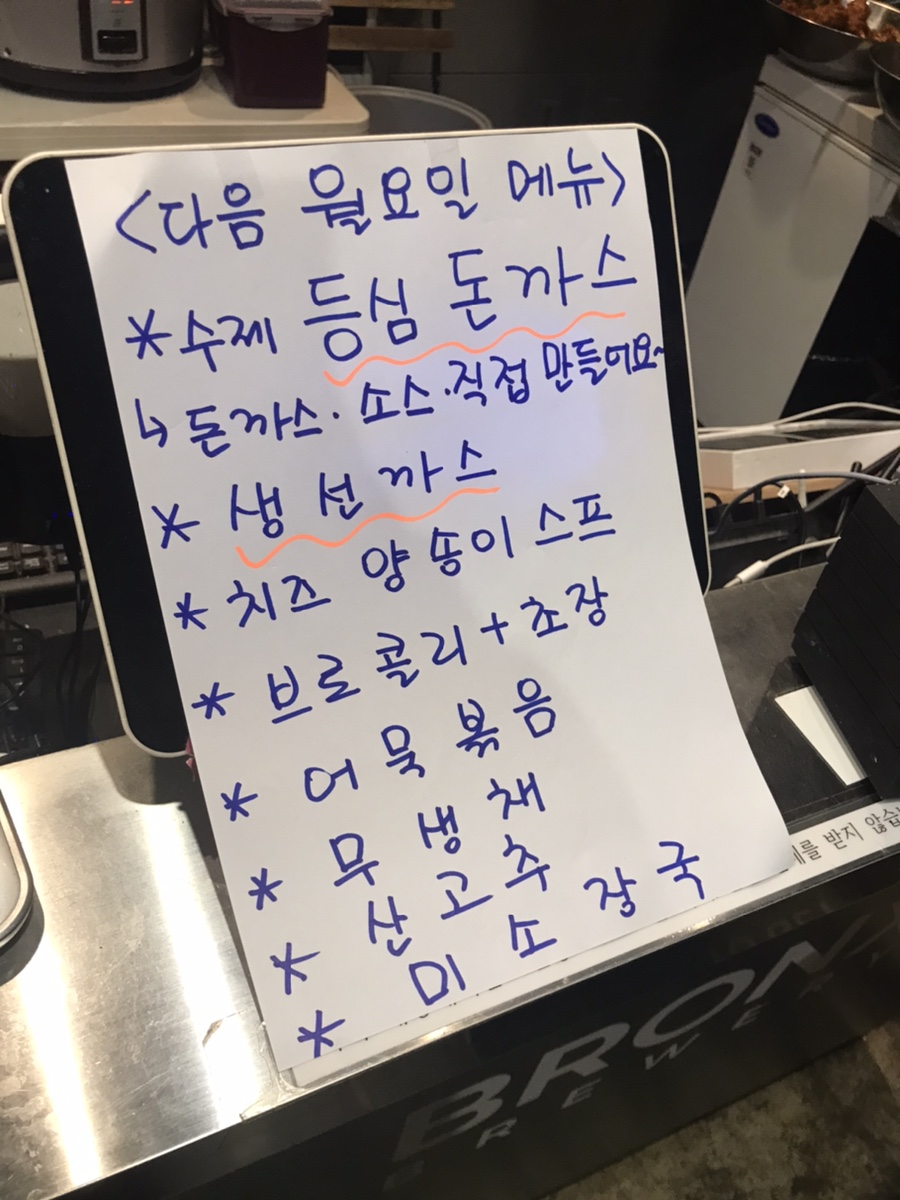 <다음 월요일 메뉴>
* 수제 등심 돈까스
↳ 돈까스·소스·직접 만들어요~
* 생선까스
* 치즈 양송이 스프
* 브로콜리 + 초장
* 어묵볶음
* 무생채
* 산고추
* 미소장국
를 받지 않습
BRONX
BREWE